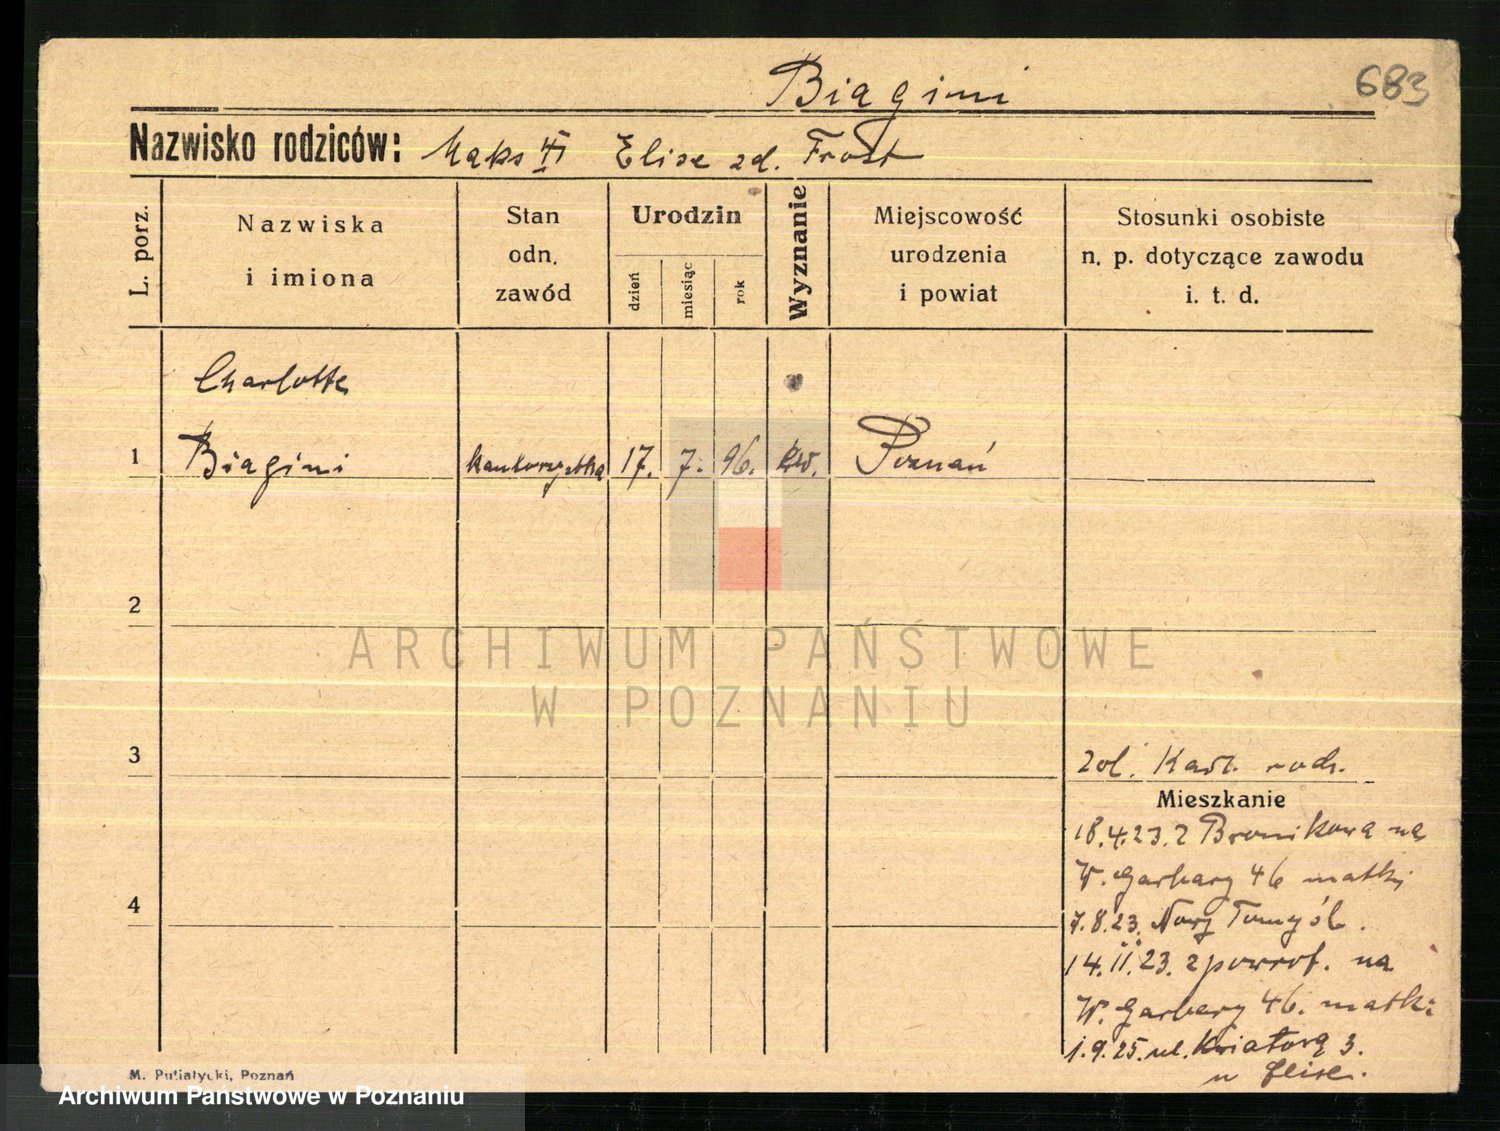 Biagini
683
Nazwisko rodziców: Maks Elise zd. Frost
L. porz.
Nazwiska
i imiona
Stan
odn.
zawód
Urodzin
dzień
miesiąc
rok
Wyznanie
Miejscowość
urodzenia
i powiat
Stosunki osobiste
n. p. dotyczące zawodu
i. t. d.
Charlotte
1 Biagini kantorzystka 17. 7. 96. ew. Poznań
2
ARCHIWUM PAŃSTWOWE
W POZNANIU
3
Mieszkanie
18.4.23. z Bronikowa na
W. Garbary 46 matki
4
7.8.23. Nowy Tomyśl.
14.11.23. zpowrot. na
W. Garbary 46. matki
1.9.25. ul. Kwiatowa 3.
u Elise.
M. Putiatycki, Poznań
Archiwum Państwowe w Poznaniu